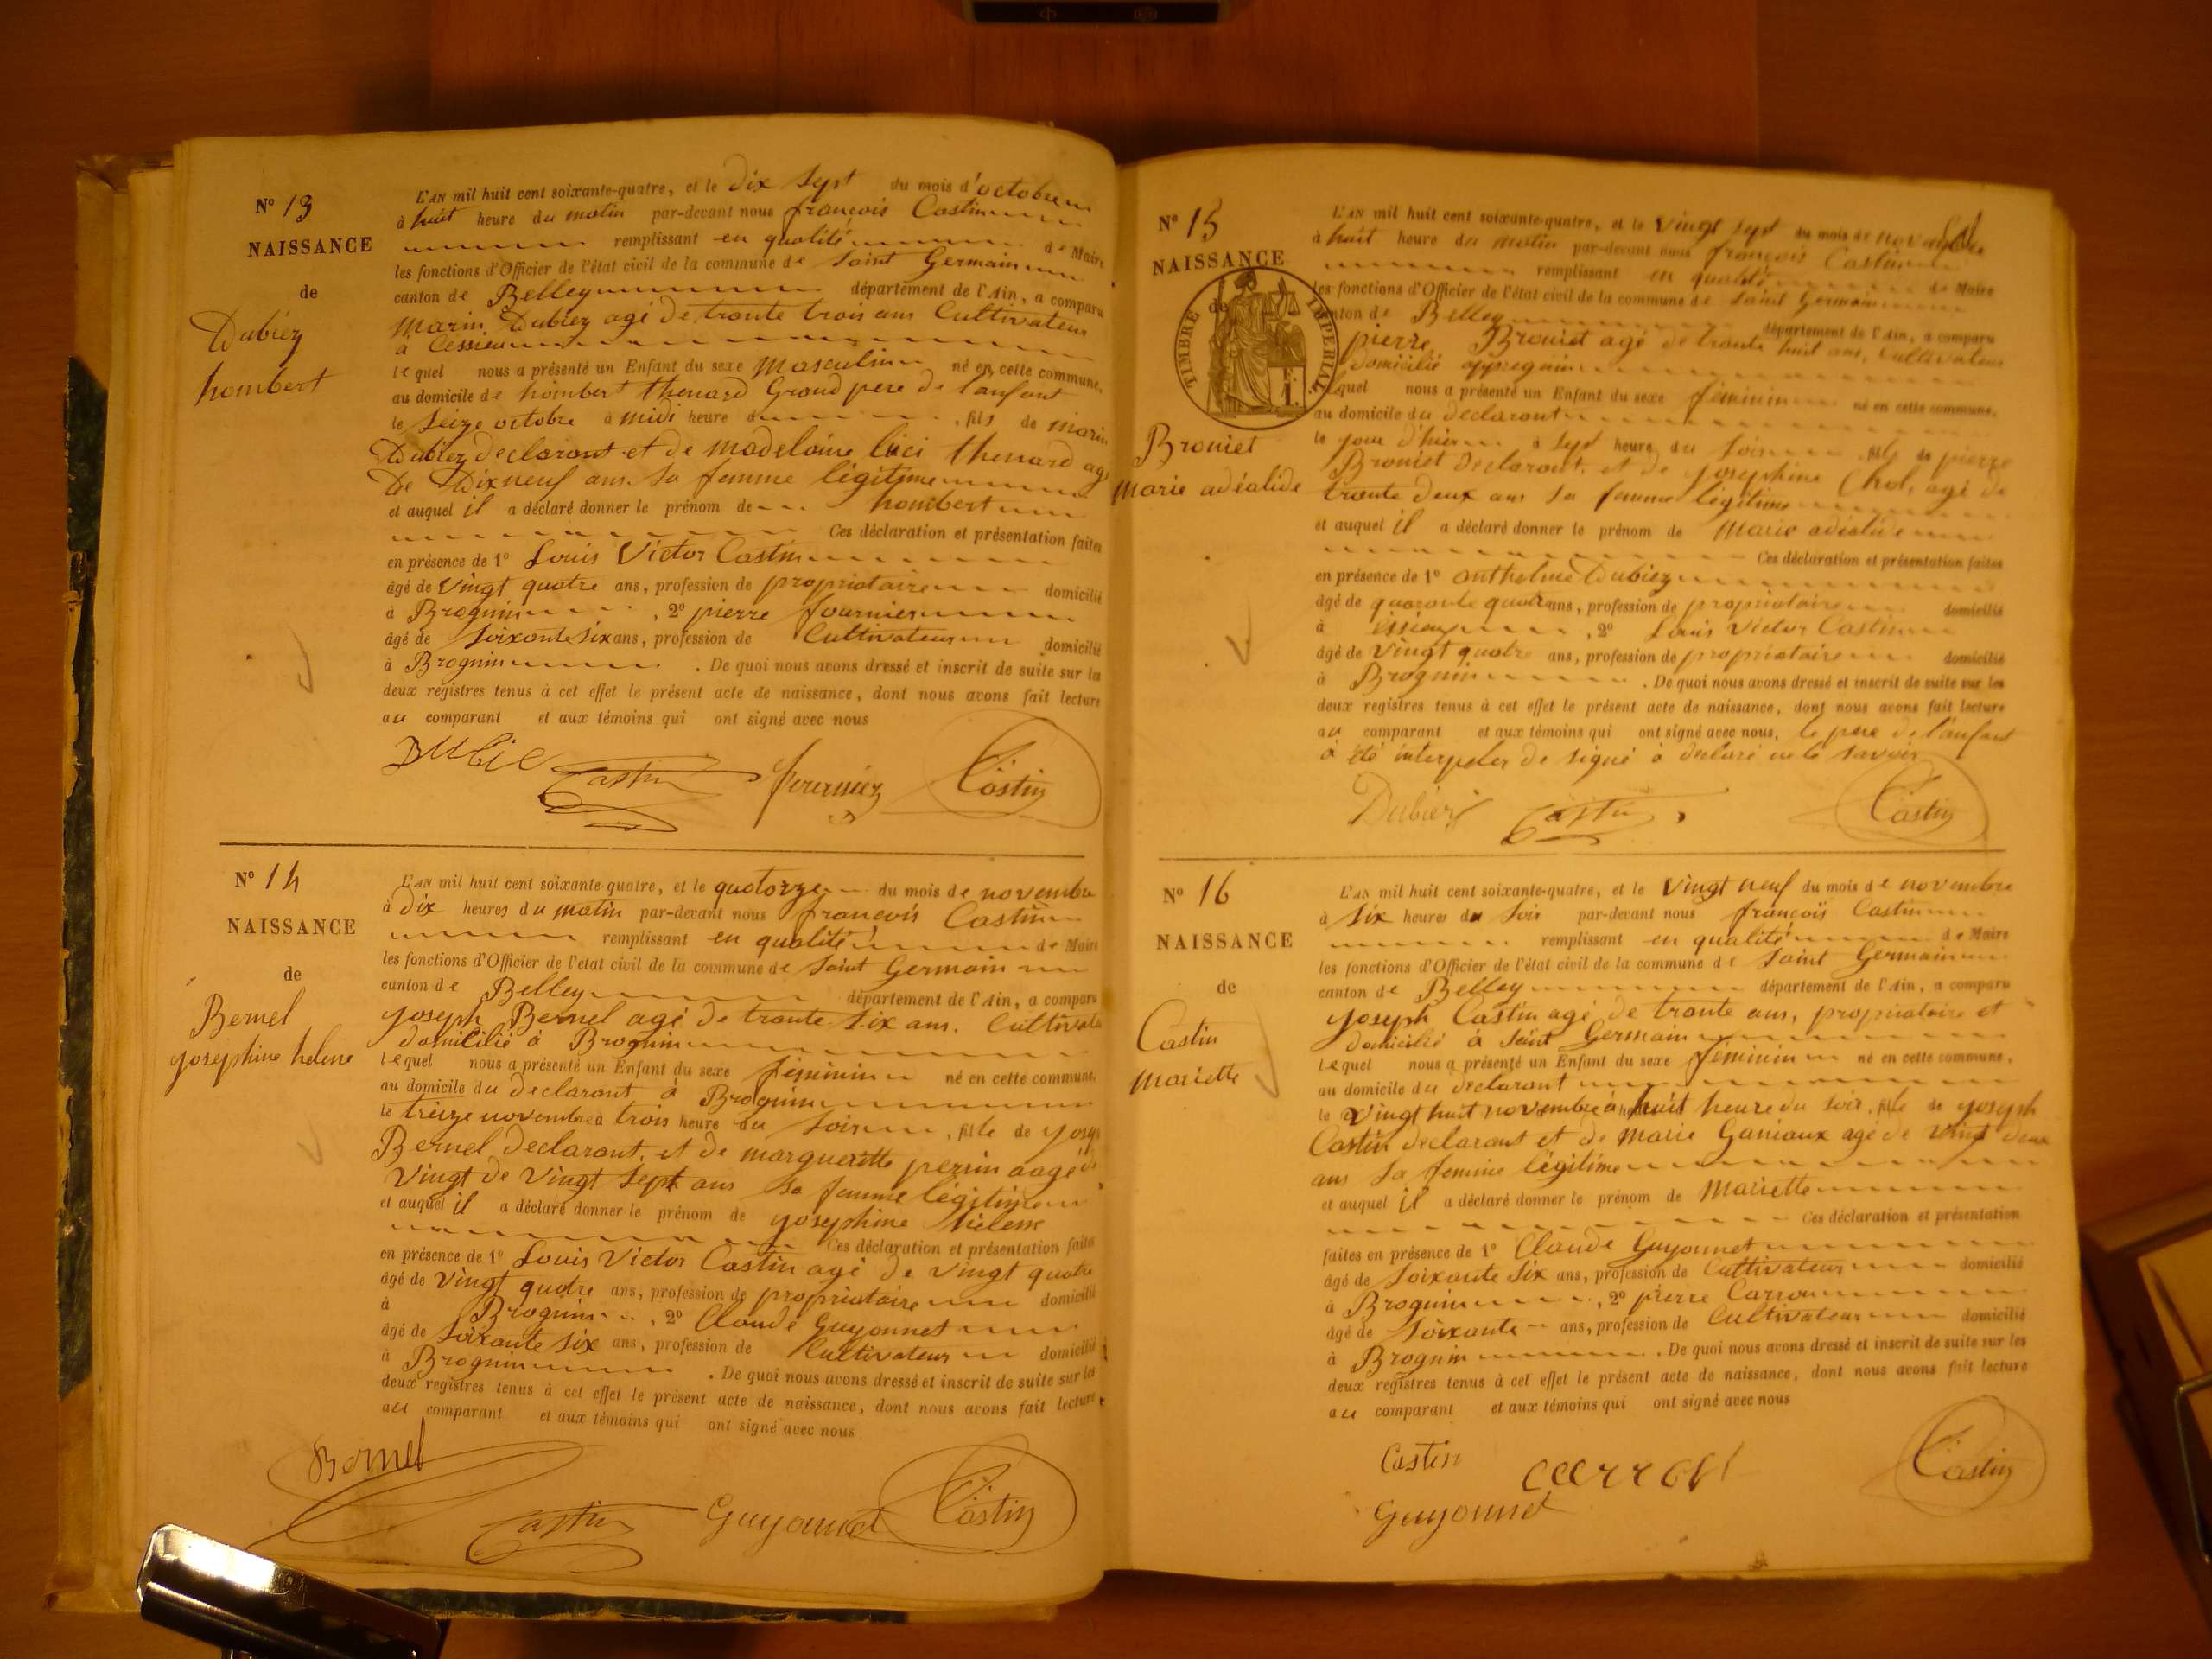 N° 13
NAISSANCE
de
Dubiez
hombert
L'AN mil huit cent soixante-quatre, et le dix sept du mois d'octobre
à huit heure du matin par-devant nous françois Castin
remplissant en qualité de Maire
les fonctions d'Officier de l'état civil de la commune de Saint Germain
canton de Belley département de l'Ain, a comparu
Marin Dubiez agé de trante trois ans Cultivateur
à Cessieu
lequel nous a présenté un Enfant du sexe Masculin né en cette commune,
au domicile de hombert thenard Grand pere de l'anfant
le Seize octobre à midi heure d , fils de marin
Dubiez declarant et de madelaine luci thenard agé
De Dixneuf ans. Sa femme légitime
et auquel il a déclaré donner le prénom de hombert
Ces déclaration et présentation faites
en présence de 1° Louis Victor Castin
âgé de Vingt quatre ans, profession de propriataire domicilié
à Brognin , 2° pierre fournier
âgé de Soixante Six ans, profession de Cultivateur domicilié
à Brognin . De quoi nous avons dressé et inscrit de suite sur les
deux registres tenus à cet effet le présent acte de naissance, dont nous avons fait lecture
au comparant et aux témoins qui ont signé avec nous
Dubie Castin fournier Castin
N° 14
NAISSANCE
de
Bernel
Josephine helene
L'AN mil huit cent soixante-quatre, et le quatorze du mois de novembre
à dix heures du matin par-devant nous françois Castin
remplissant en qualité de Maire
les fonctions d'Officier de l'etat civil de la commune de Saint Germain
canton de Belley département de l'Ain, a comparu
Joseph Bernel agé de trante Six ans. Cultivate
domicilié à Brognin
lequel nous a présenté un Enfant du sexe féminin né en cette commune,
au domicile du declarant à Brognin
le treize novembre à trois heure du Soir , fille de Josep
Bernel declarant, et de margueritte perrin aagé de
Vingt de Vingt Sept ans Sa femme légitime
et auquel il a déclaré donner le prénom de Josephine hélene
Ces déclaration et présentation faites
en présence de 1° Louis Victor Castin agé de vingt quatre
âgé de Vingt quatre ans, profession de propriataire domicilié
à Brognin , 2° Claude Guyonnet
âgé de Soixante Six ans, profession de Cultivateur domicilié
à Brognin . De quoi nous avons dressé et inscrit de suite sur les
deux registres tenus à cet effet le présent acte de naissance, dont nous avons fait lecture
au comparant et aux témoins qui ont signé avec nous
Bernel Castin Guyonnet Castin
N° 15
NAISSANCE
de
TIMBRE IMPERIAL
Broniet
Marie adéalide
L'AN mil huit cent soixante-quatre, et le Vingt Sept du mois de novembre
à huit heure du matin par-devant nous françois Castin
remplissant en qualité de Maire
les fonctions d'Officier de l'état civil de la commune de Saint Germain
canton de Belley département de l'Ain, a comparu
pierre Broniet agé de trante huit ans, Cultivateur
domicilié
lequel nous a présenté un Enfant du sexe féminin né en cette commune,
au domicile du declarant
le jour d'hier à Sept heure du Soir , fille de pierre
Broniet declarant, et de Josephine Chol, agé de
trante deux ans Sa femme légitime
et auquel il a déclaré donner le prénom de Marie adéalide
Ces déclaration et présentation faites
en présence de 1° anthelme Dubiez
âgé de quarante quatre ans, profession de propriataire domicilié
à , 2° Louis Victor Castin
âgé de Vingt quatre ans, profession de propriataire domicilié
à Brognin . De quoi nous avons dressé et inscrit de suite sur les
deux registres tenus à cet effet le présent acte de naissance, dont nous avons fait lecture
au comparant et aux témoins qui ont signé avec nous, le pere de l'anfant
à été interpeler de signé à declaré ne le Savoir
Dubiez Castin Castin
N° 16
NAISSANCE
de
Castin
Mariette
L'AN mil huit cent soixante-quatre, et le Vingt neuf du mois de novembre
à Six heures du Soir par-devant nous françois Castin
remplissant en qualité de Maire
les fonctions d'Officier de l'état civil de la commune de Saint Germain
canton de Belley département de l'Ain, a comparu
Joseph Castin agé de trante ans, propriataire et
domicilié à Saint Germain
lequel nous a présenté un Enfant du sexe féminin né en cette commune,
au domicile du declarant
le Vingt huit novembre à huit heure du Soir, fille de Joseph
Castin declarant et de Marie Ganiaux agé de vingt deux
ans Sa femme légitime
et auquel il a déclaré donner le prénom de Mariette
Ces déclaration et présentation
faites en présence de 1° Claude Guyonnet
âgé de Soixante Six ans, profession de Cultivateur domicilié
à Brognin , 2° pierre Carron
âgé de Soixante ans, profession de Cultivateur domicilié
à Brognin . De quoi nous avons dressé et inscrit de suite sur les
deux registres tenus à cet effet le présent acte de naissance, dont nous avons fait lecture
au comparant et aux témoins qui ont signé avec nous
Castin Castin
Guyonnet